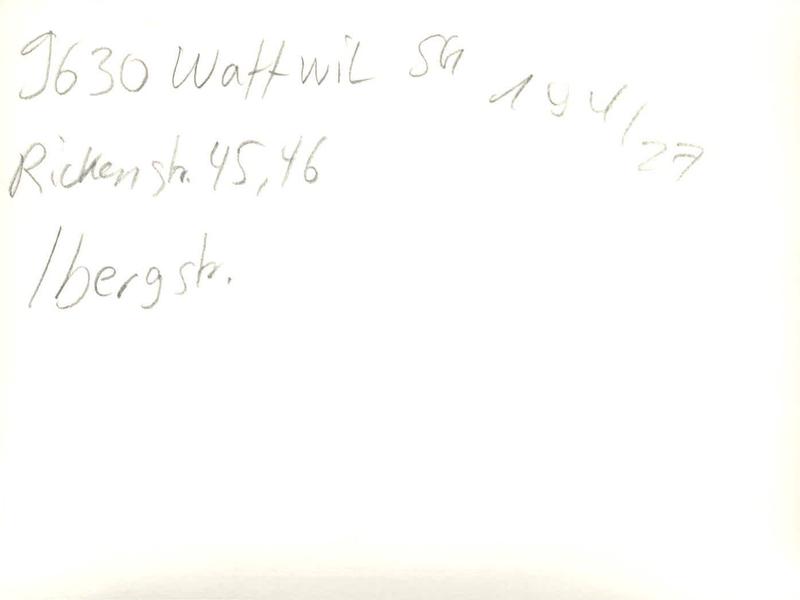 9630 Wattwil SG 194/27
Rickenstr. 45, 46
Ibergstr.